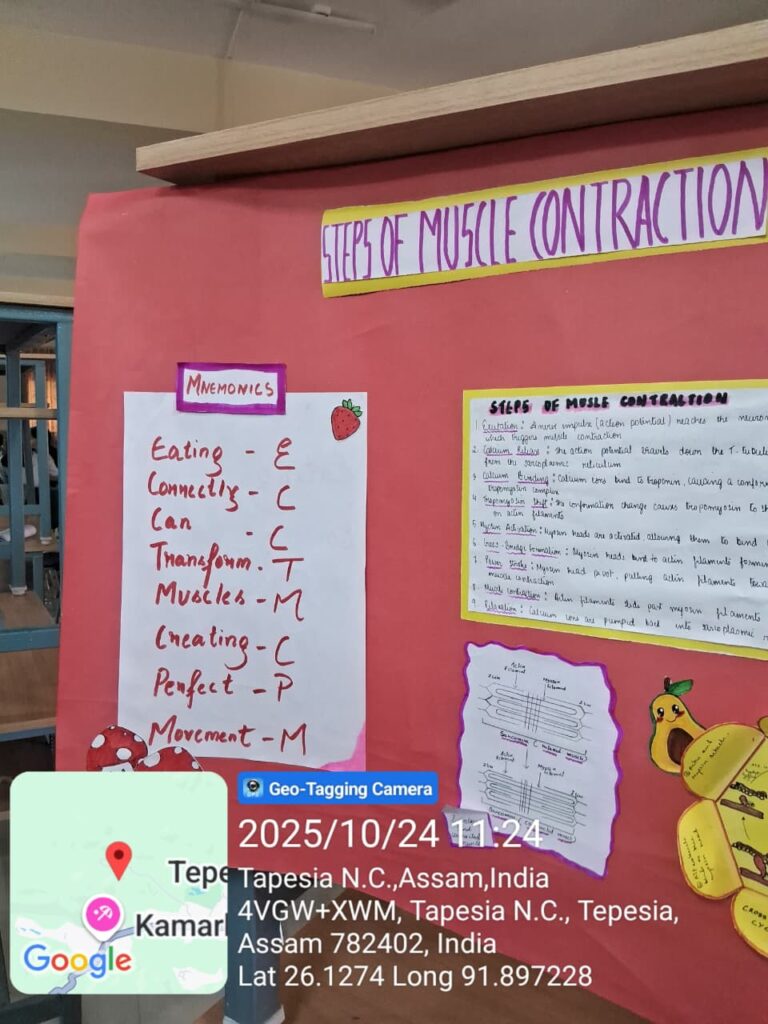 STEPS OF MUSCLE CONTRACTION
MNEMONICS
Eating - E
Connectly - C
Can - C
Transform. T
Muscles - M
Creating - C
Perfect - P
Movement - M
STEPS OF MUSLE CONTRACTION
1. Excitation: A nerve impulse (action potential) reaches the neurom
which triggers muscle contraction
2. Calcium Release: the action potential travels down the T. tubule
from the sarcoplasmic reticulum
3. Calcium Binding: Calcium ions bind to troponin, causing a conform
tropomyosin complex
4. Tropomyosin Shift: the conformation change causes tropomyosin to sh
on actin filaments
5. Myosin Activation: Myosin heads are activated, allowing them to bind
6. Cross-Bridge Formation: Myosin heads bind to actin filaments forming
7. Power Stroke: Myosin head pivot, pulling actin filaments towa
muscle contraction
8. Muscle Contraction: Actin filaments slide past myosin filaments
9. Relaxation: Calcium ions are pumped back into sarcoplasmic
Actin
filament
Myosin
filament
Z line
Z line
Actin
filament
Myosin
filament
Z line
Z line
CROSS
CYC
Geo-Tagging Camera
2025/10/24 11:24
Tapesia N.C.,Assam,India
4VGW+XWM, Tapesia N.C., Tepesia,
Assam 782402, India
Lat 26.1274 Long 91.897228
Tepe
Kamar
Google